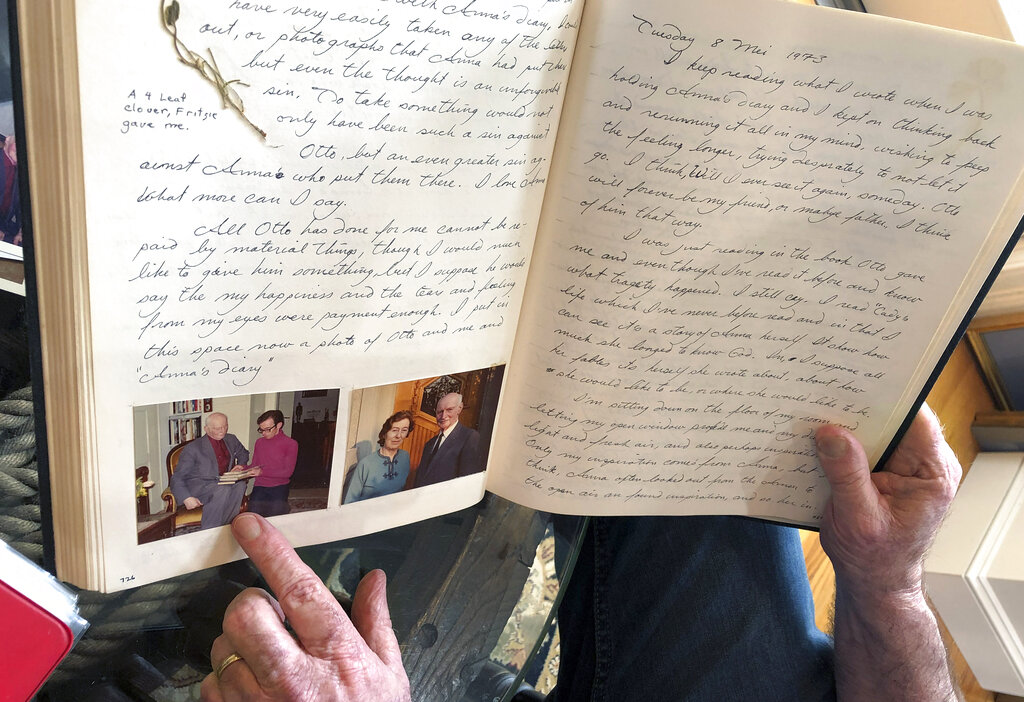 with Anna's diary, I could
have very easily taken any of the letters
out, or photographs that Anna had put there
but even the thought is an unforgivable
sin. To take something would not
only have been such a sin against
Otto, but an even greater sin ag-
ainst Anna who put them there. I love Anna
What more can I say.
All Otto has done for me cannot be re-
paid by material things, though I would much
like to give him something, but I suppose he would
say the my happiness and the tears and feeling
from my eyes were payment enough. I put in
this space now a photo of Otto and me and
"Anna's diary"
A 4 Leaf
clover, Fritzie
gave me.
726
Tuesday 8 Mei 1973
I keep reading what I wrote when I was
holding Anna's diary and I kept on thinking back
and rerunning it all in my mind, wishing to keep
the feeling longer, trying desprately to not let it
go. I think, Will I ever see it again, someday. Otto
will forever be my friend, or maybe father, I think
of him that way.
I was just reading in the book Otto gave
me and even though I've read it before and know
what tragety happened. I still cry. I read "Cady's
life which I've never before read and in that I
can see it's a story of Anna herself. It show how
much she longed to know God. I suppose all
her fables its herself she wrote about, about how
she would like to be or where she would like to be.
I'm sitting down on the floor of my room and
letting my open window me and my
light and fresh air, and also perhaps inspiration
Only my inspiration comes from Anna, but I
think, Anna often looked out from the Annex, to
the open air an found inspiration, and so her in